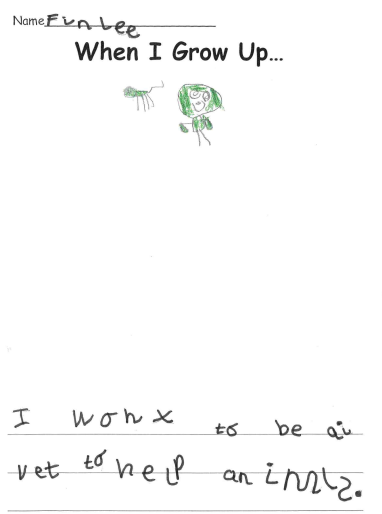 Name Finlee
When I Grow Up...
I wont to be a
vet to help an imls.